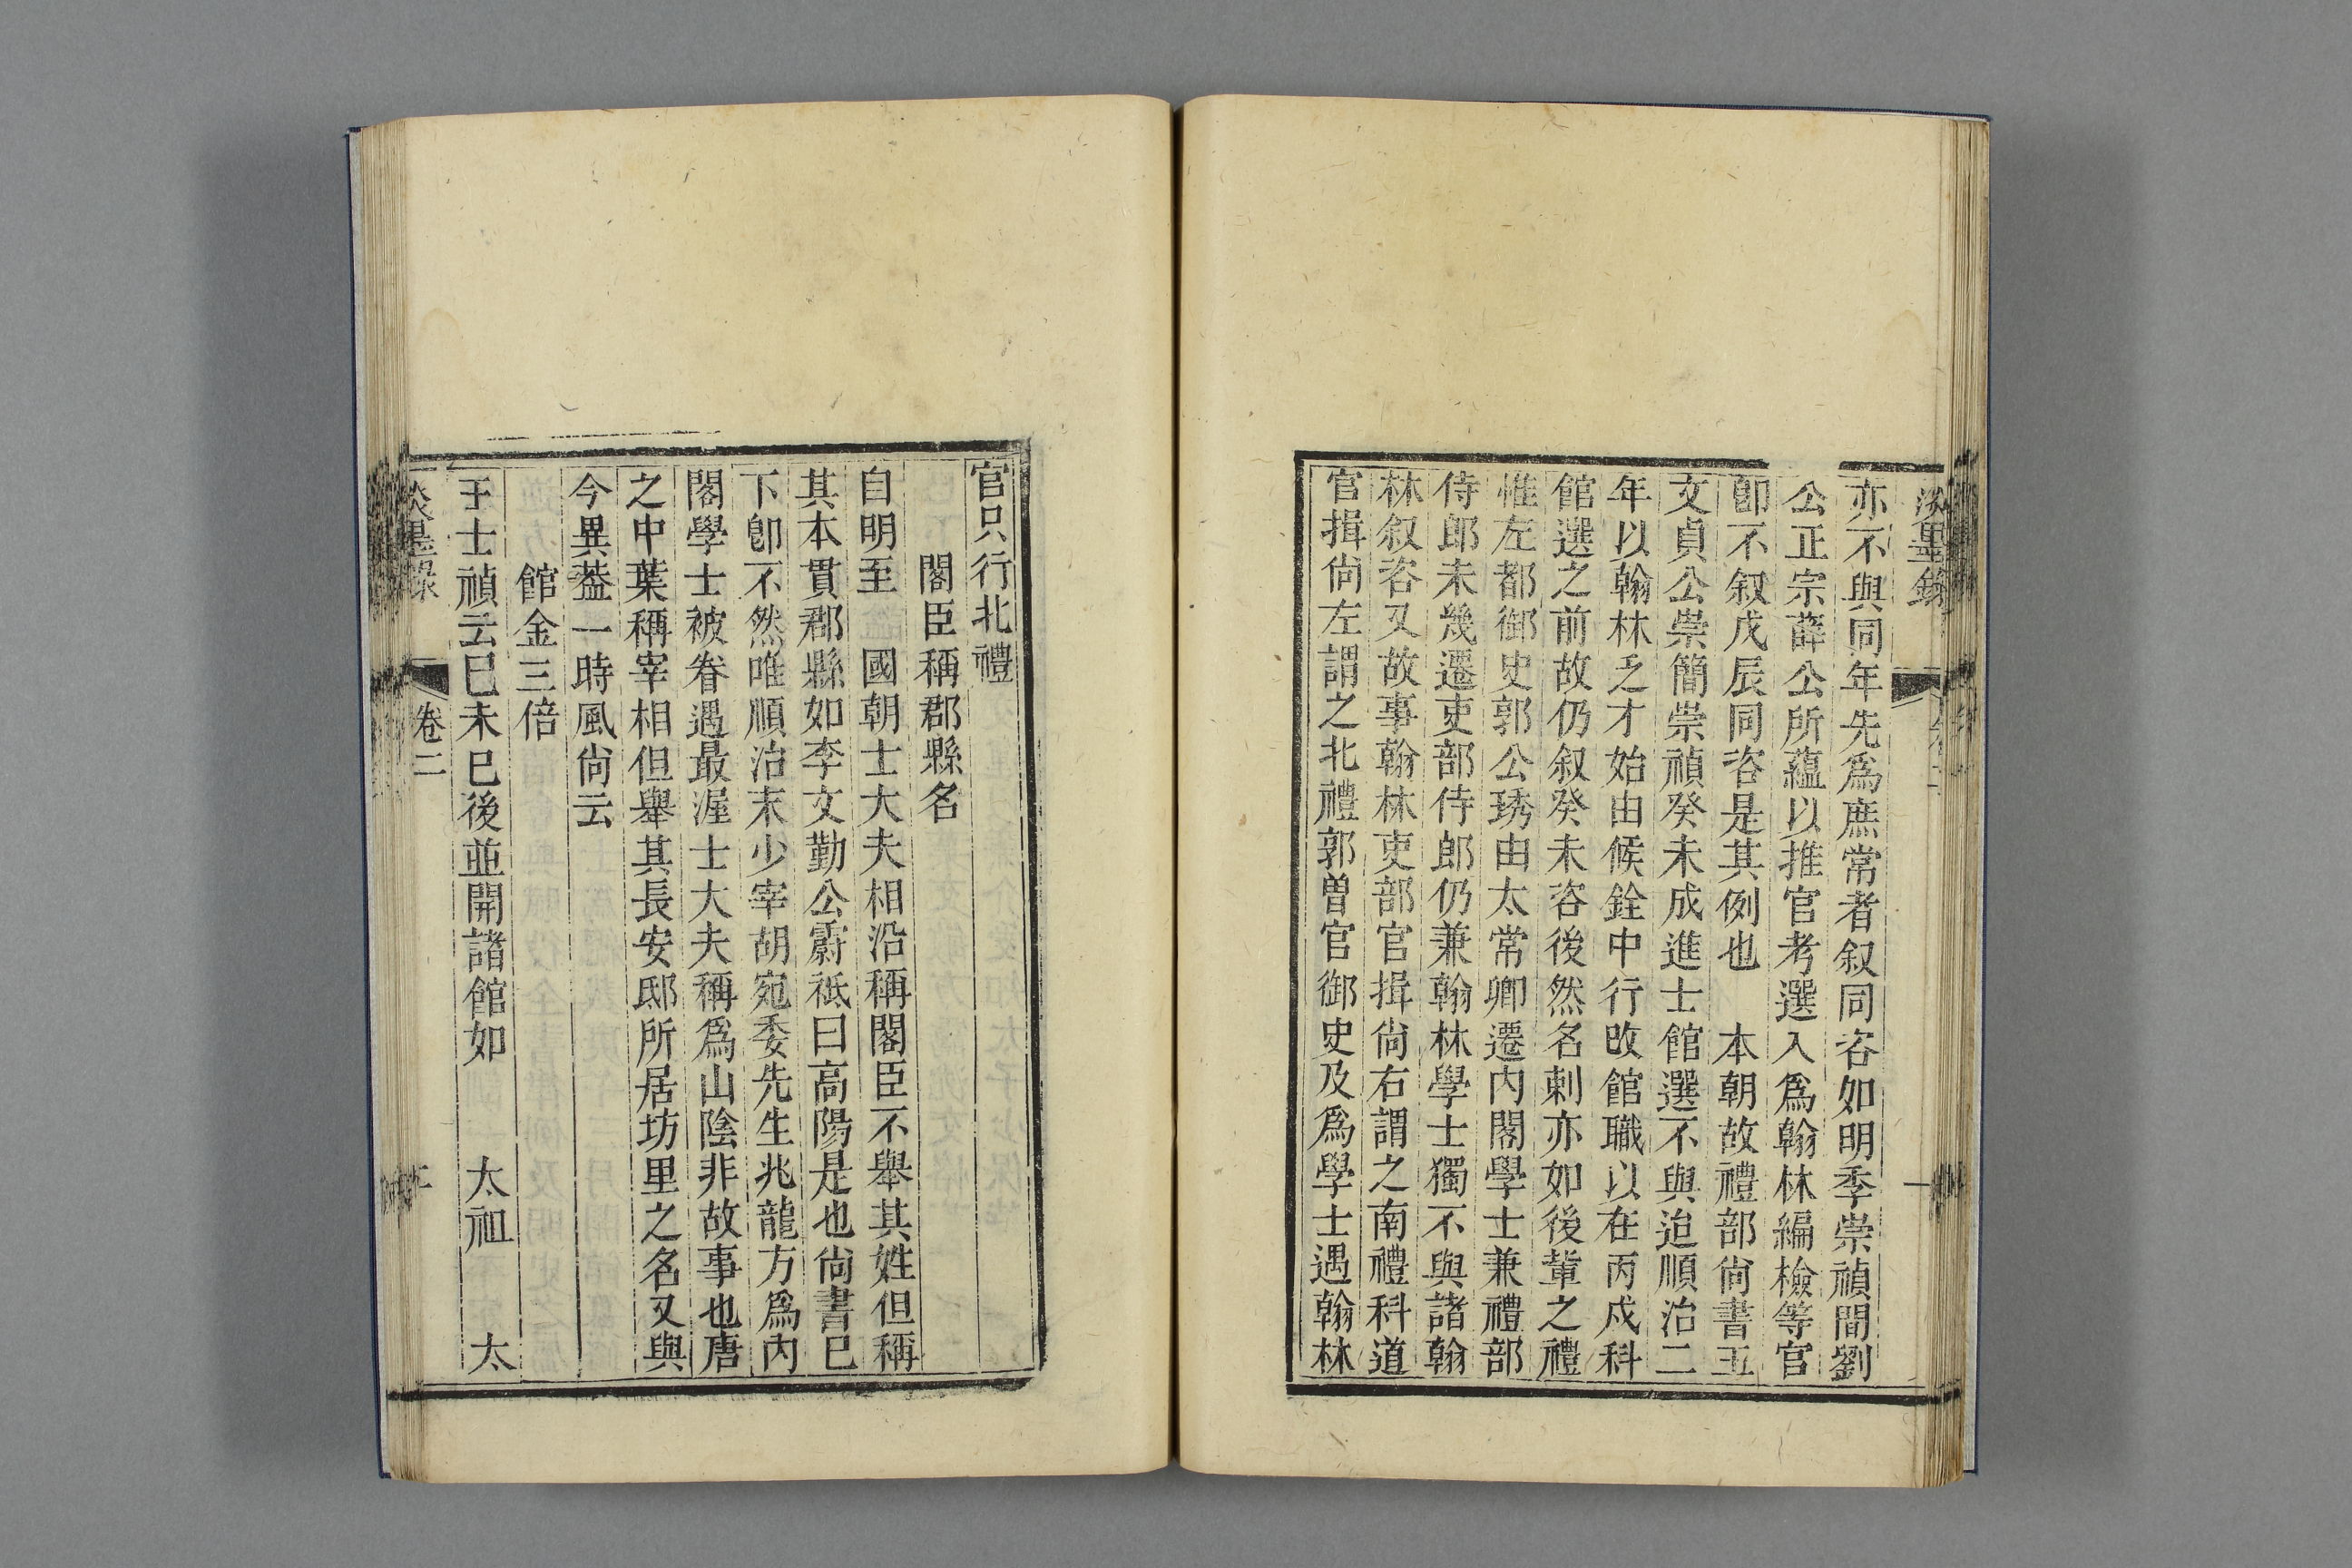 淡墨錄
亦不與同年先爲庶常者叙同咨如明季崇禎間劉
公正宗薛公所蘊以推官考選入爲翰林編檢等官
卽不叙戊辰同咨是其例也　本朝故禮部尙書王
文貞公崇簡崇禎癸未成進士館選不與迨順治二
年以翰林乏才始由候銓中行改館職以在丙戌科
館選之前故仍叙癸未咨後然名刺亦如後輩之禮
惟左都御史郭公琇由太常卿遷內閣學士兼禮部
侍郎未幾遷吏部侍郎仍兼翰林學士獨不與諸翰
林叙咨又故事翰林吏部官揖尙右謂之南禮科道
官揖尙左謂之北禮郭曾官御史及爲學士遇翰林
官只行北禮
閣臣稱郡縣名
自明至　國朝士大夫相沿稱閣臣不舉其姓但稱
其本貫郡縣如李文勤公霨祗曰高陽是也尙書已
下卽不然唯順治末少宰胡宛委先生兆龍方爲內
閣學士被眷遇最渥士大夫稱爲山陰非故事也唐
之中葉稱宰相但舉其長安邸所居坊里之名又與
今異葢一時風尙云
館金三倍
王士禎云巳未巳後並開諸館如　太祖　太
淡墨錄　卷二